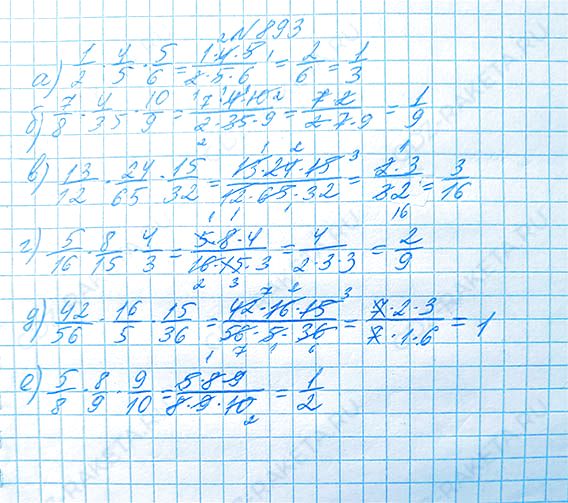 №893
а) 1/2 · 4/5 · 5/6 = 1·4·5/2·5·6 = 2/6 = 1/3
б) 7/8 · 4/35 · 10/9 = 7·4·10/2·35·9 = 7·2/2·7·9 = 1/9
в) 13/12 · 24/65 · 15/32 = 13·24·15/12·65·32 = 2·3/32 = 3/16
г) 5/16 · 8/15 · 4/3 = 5·8·4/16·15·3 = 4/2·3·3 = 2/9
д) 42/56 · 16/5 · 15/36 = 42·16·15/56·5·36 = 7·2·3/7·1·6 = 1
е) 5/8 · 8/9 · 9/10 = 5·8·9/8·9·10 = 1/2